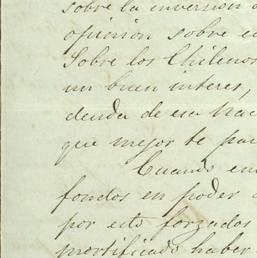 sobre la inversion
opinion sobre e
Sobre los Chilenos
un buen interes,
deuda de esa hac
que mejor te pa
Cuando en
fondos en poder
por esto forzados
mortificado haber